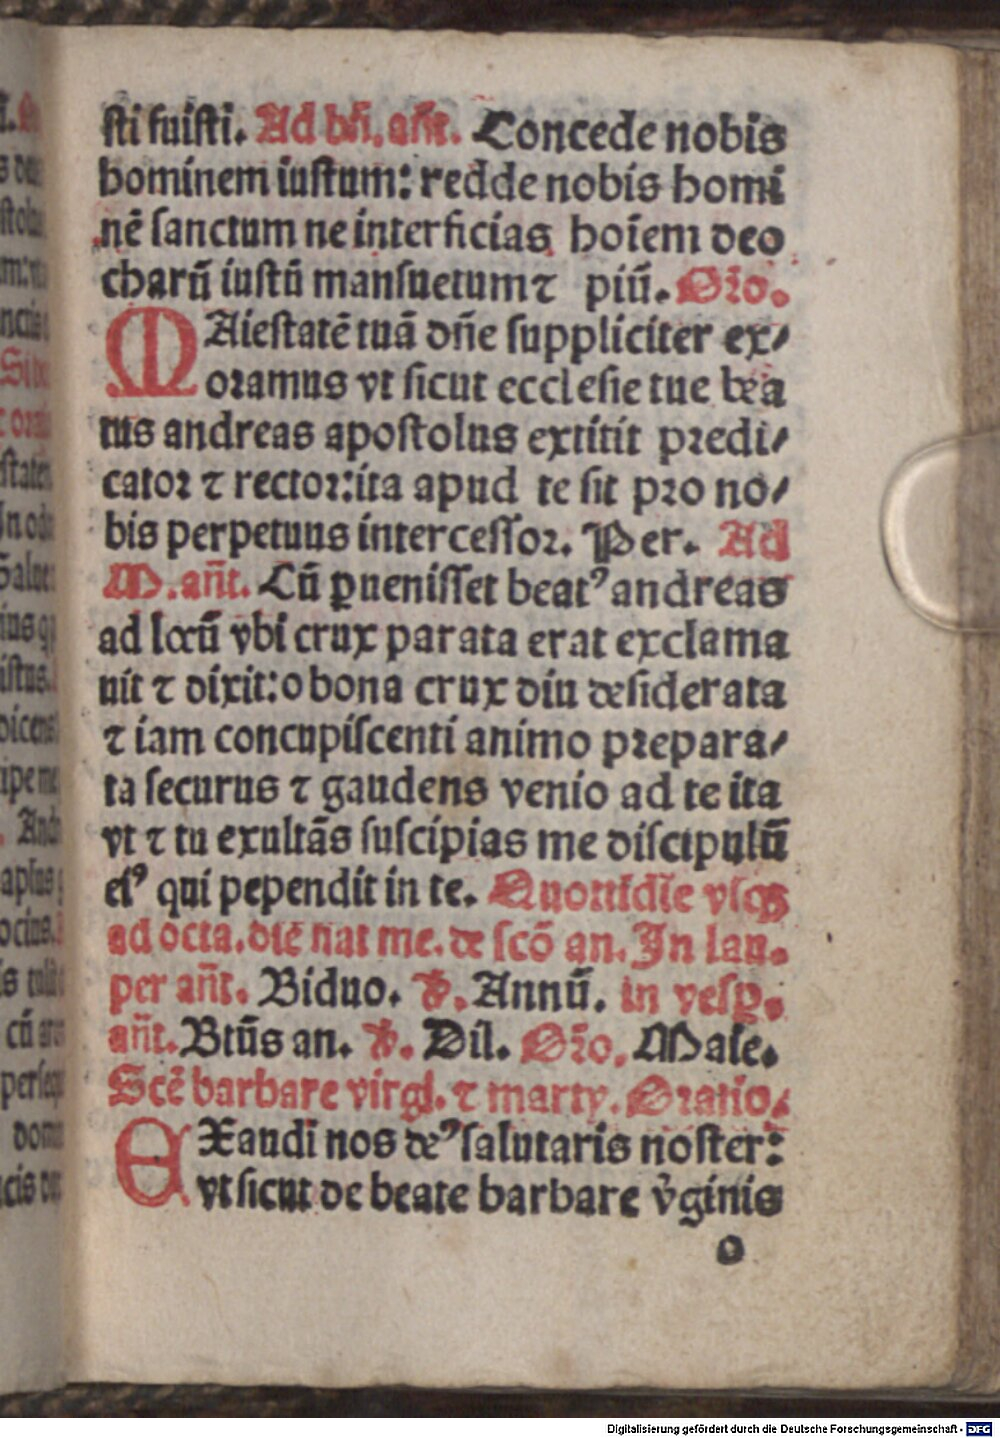 sti fuisti. Ad bñ. añt. Concede nobis
hominem iustum: redde nobis homi
nē sanctum ne interficias hoīem deo
charū iustū mansuetum ⁊ piū. Oꝛo.
MAiestatē tuā dñe suppliciter ex⸗
oꝛamus vt sicut ecclesie tue bea
tus andreas apostolus extitit pꝛedi⸗
catoꝛ ⁊ rectoꝛ: ita apud te sit pꝛo no⸗
bis perpetuus intercessoꝛ. Per. Ad
M. añt. Cū ꝑuenisset beatꝰ andreas
ad locū vbi crux parata erat exclama
uit ⁊ dixit: o bona crux diu desiderata
⁊ iam concupiscenti animo pꝛepara⸗
ta securus ⁊ gaudens venio ad te ita
vt ⁊ tu exultās suscipias me discipulū
eiꝰ qui pependit in te. Quottidie vsqꝫ
ad octa. die nat me. de scō an. In lau.
per añt. Biduo. ℣. Annū. in vesꝑ.
añt. Btūs an. ℣. Dil. Oꝛo. Maie.
Scē barbare virgi. ⁊ marty. Oꝛatio.
EXaudi nos deꝰ salutaris noster:
vt sicut de beate barbare v̄ginis
o
ipe me
aplus
persequ
Digitalisierung gefördert durch die Deutsche Forschungsgemeinschaft - DFG